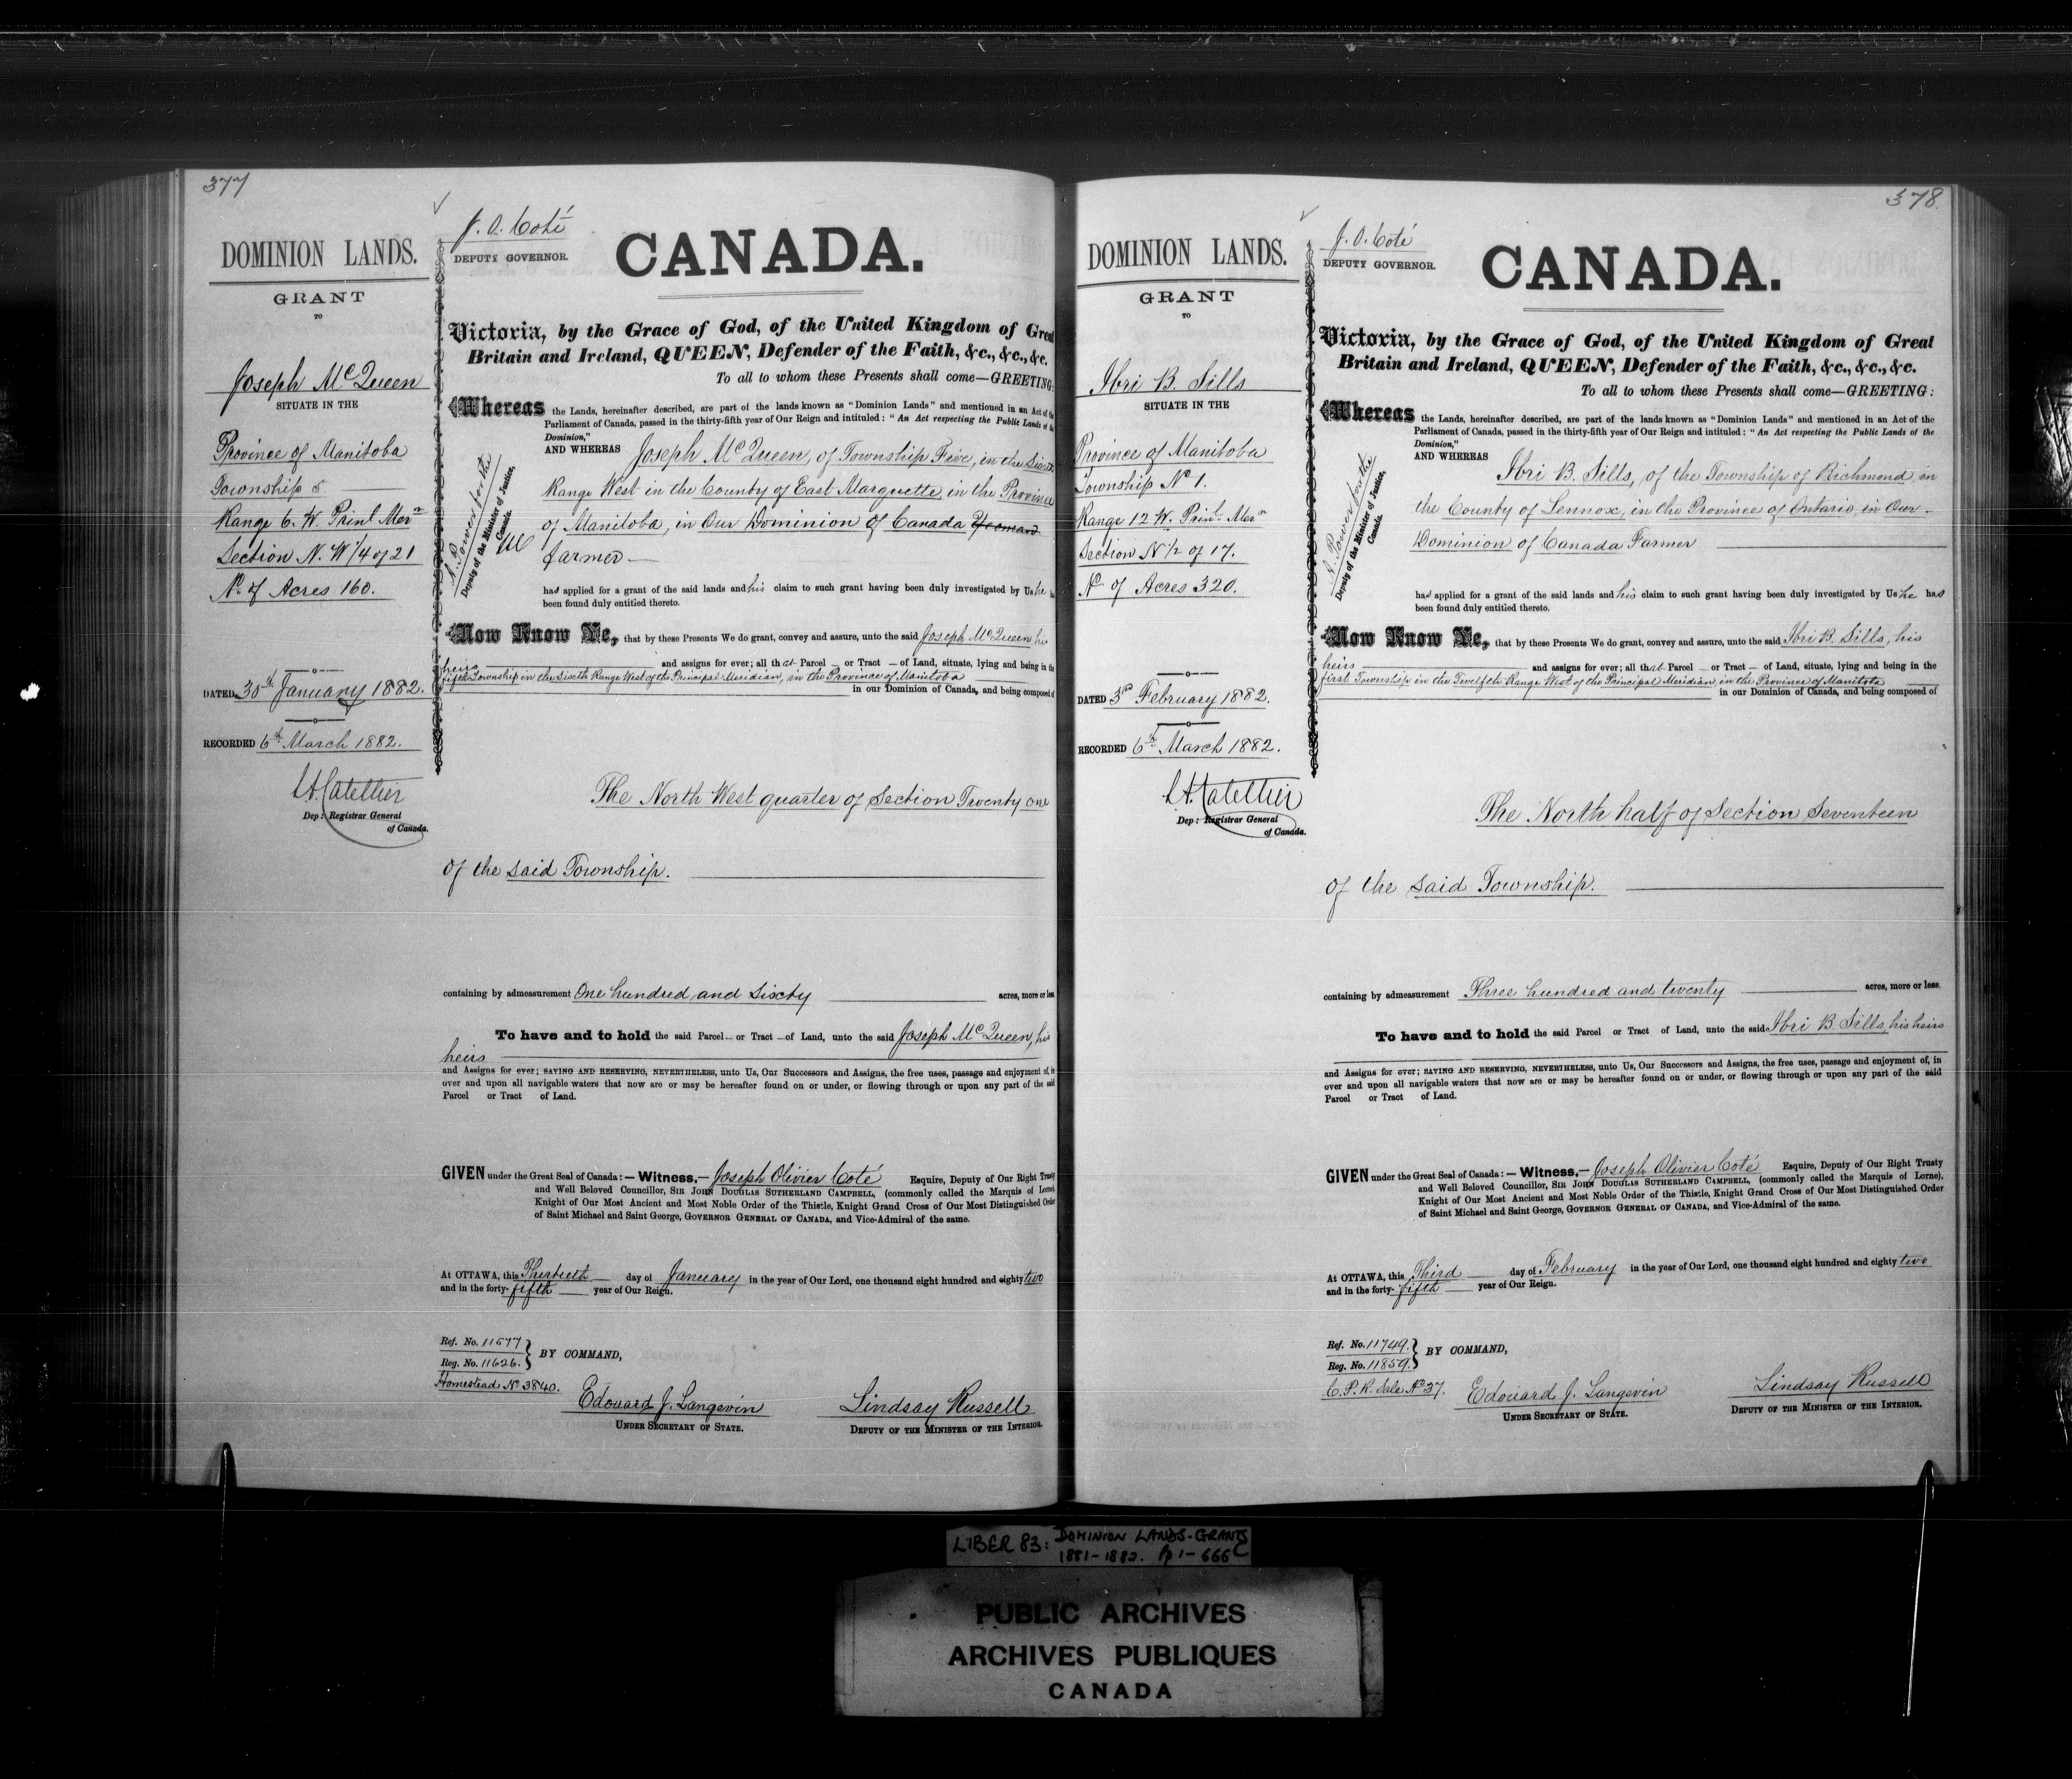 377
DOMINION LANDS.
GRANT
TO
Joseph McQueen
SITUATE IN THE
Province of Manitoba
Township 5.
Range 6. W. Prinl Mern
Section N. W 1/4 of 21
No. of Acres 160.
DATED 30th January 1882.
RECORDED 6th March 1882.
Dep: Registrar General
of Canada.
J. O. Coté
DEPUTY GOVERNOR.
CANADA.
Victoria, by the Grace of God, of the United Kingdom of Great
Britain and Ireland, QUEEN, Defender of the Faith, &c., &c., &c.
To all to whom these Presents shall come—GREETING:
Whereas the Lands, hereinafter described, are part of the lands known as "Dominion Lands" and mentioned in an Act of the
Parliament of Canada, passed in the thirty-fifth year of Our Reign and intituled: "An Act respecting the Public Lands of the
Dominion,"
AND WHEREAS Joseph McQueen, of Township Five, in the Sixth
Range West in the County of East Marquette, in the Province
of Manitoba, in Our Dominion of Canada Yeoman
farmer
A. Power for the
Deputy of the Minister of Justice,
Canada.
had applied for a grant of the said lands and his claim to such grant having been duly investigated by Us he
been found duly entitled thereto.
Now Know Ye, that by these Presents We do grant, convey and assure, unto the said Joseph McQueen his
heirs and assigns for ever; all that Parcel or Tract of Land, situate, lying and being in the
fifth Township in the Sixth Range West of the Principal Meridian, in the Province of Manitoba
in our Dominion of Canada, and being composed of
The North West quarter of Section Twenty one
of the said Township.
containing by admeasurement One hundred and Sixty acres, more or less
To have and to hold the said Parcel or Tract of Land, unto the said Joseph McQueen, his
heirs
and Assigns for ever; SAVING AND RESERVING, NEVERTHELESS, unto Us, Our Successors and Assigns, the free uses, passage and enjoyment of, in
over and upon all navigable waters that now are or may be hereafter found on or under, or flowing through or upon any part of the said
Parcel or Tract of Land.
GIVEN under the Great Seal of Canada:—Witness,—Joseph Olivier Coté Esquire, Deputy of Our Right Trusty
and Well Beloved Councillor, SIR JOHN DOUGLAS SUTHERLAND CAMPBELL, (commonly called the Marquis of Lorne),
Knight of Our Most Ancient and Most Noble Order of the Thistle, Knight Grand Cross of Our Most Distinguished Order
of Saint Michael and Saint George, GOVERNOR GENERAL OF CANADA, and Vice-Admiral of the same.
At OTTAWA, this Thirtieth day of January in the year of Our Lord, one thousand eight hundred and eighty two
and in the forty-fifth year of Our Reign.
Ref. No. 11577
Reg. No. 11626.
BY COMMAND,
Homestead No 3840.
Edouard J. Langevin
UNDER SECRETARY OF STATE.
Lindsay Russell
DEPUTY OF THE MINISTER OF THE INTERIOR.
378
DOMINION LANDS.
GRANT
TO
Ibri B. Sills
SITUATE IN THE
Province of Manitoba
Township No 1.
Range 12 W. Prinl Mern
Section N 1/2 of 17.
No of Acres 320.
DATED 3rd February 1882.
RECORDED 6th March 1882.
Dep: Registrar General
of Canada.
J. O. Coté
DEPUTY GOVERNOR.
CANADA.
Victoria, by the Grace of God, of the United Kingdom of Great
Britain and Ireland, QUEEN, Defender of the Faith, &c., &c., &c.
To all to whom these Presents shall come—GREETING:
Whereas the Lands, hereinafter described, are part of the lands known as "Dominion Lands" and mentioned in an Act of the
Parliament of Canada, passed in the thirty-fifth year of Our Reign and intituled: "An Act respecting the Public Lands of the
Dominion,"
AND WHEREAS Ibri B. Sills, of the Township of Richmond, in
the County of Lennox, in the Province of Ontario, in Our
Dominion of Canada Farmer
A. Power for the
Deputy of the Minister of Justice,
Canada.
had applied for a grant of the said lands and his claim to such grant having been duly investigated by Us he had
been found duly entitled thereto.
Now Know Ye, that by these Presents We do grant, convey and assure, unto the said Ibri B. Sills, his
heirs and assigns for ever; all that Parcel or Tract of Land, situate, lying and being in the
first Township in the Twelfth Range West of the Principal Meridian, in the Province of Manitoba
in our Dominion of Canada, and being composed of
The North half of Section Seventeen
of the said Township.
containing by admeasurement Three hundred and twenty acres, more or less.
To have and to hold the said Parcel or Tract of Land, unto the said Ibri B. Sills, his heirs
and Assigns for ever; SAVING AND RESERVING, NEVERTHELESS, unto Us, Our Successors and Assigns, the free uses, passage and enjoyment of, in
over and upon all navigable waters that now are or may be hereafter found on or under, or flowing through or upon any part of the said
Parcel or Tract of Land.
GIVEN under the Great Seal of Canada:—Witness,—Joseph Olivier Coté Esquire, Deputy of Our Right Trusty
and Well Beloved Councillor, SIR JOHN DOUGLAS SUTHERLAND CAMPBELL, (commonly called the Marquis of Lorne),
Knight of Our Most Ancient and Most Noble Order of the Thistle, Knight Grand Cross of Our Most Distinguished Order
of Saint Michael and Saint George, GOVERNOR GENERAL OF CANADA, and Vice-Admiral of the same.
At OTTAWA, this Third day of February in the year of Our Lord, one thousand eight hundred and eighty two
and in the forty-fifth year of Our Reign.
Ref. No. 11749.
Reg. No. 11859.
BY COMMAND,
C. P. R. Sale No 37.
Edouard J. Langevin
UNDER SECRETARY OF STATE.
Lindsay Russell
DEPUTY OF THE MINISTER OF THE INTERIOR.
LIBER 83: DOMINION LANDS-GRANTS
1881-1882. Pp 1-666
PUBLIC ARCHIVES
ARCHIVES PUBLIQUES
CANADA